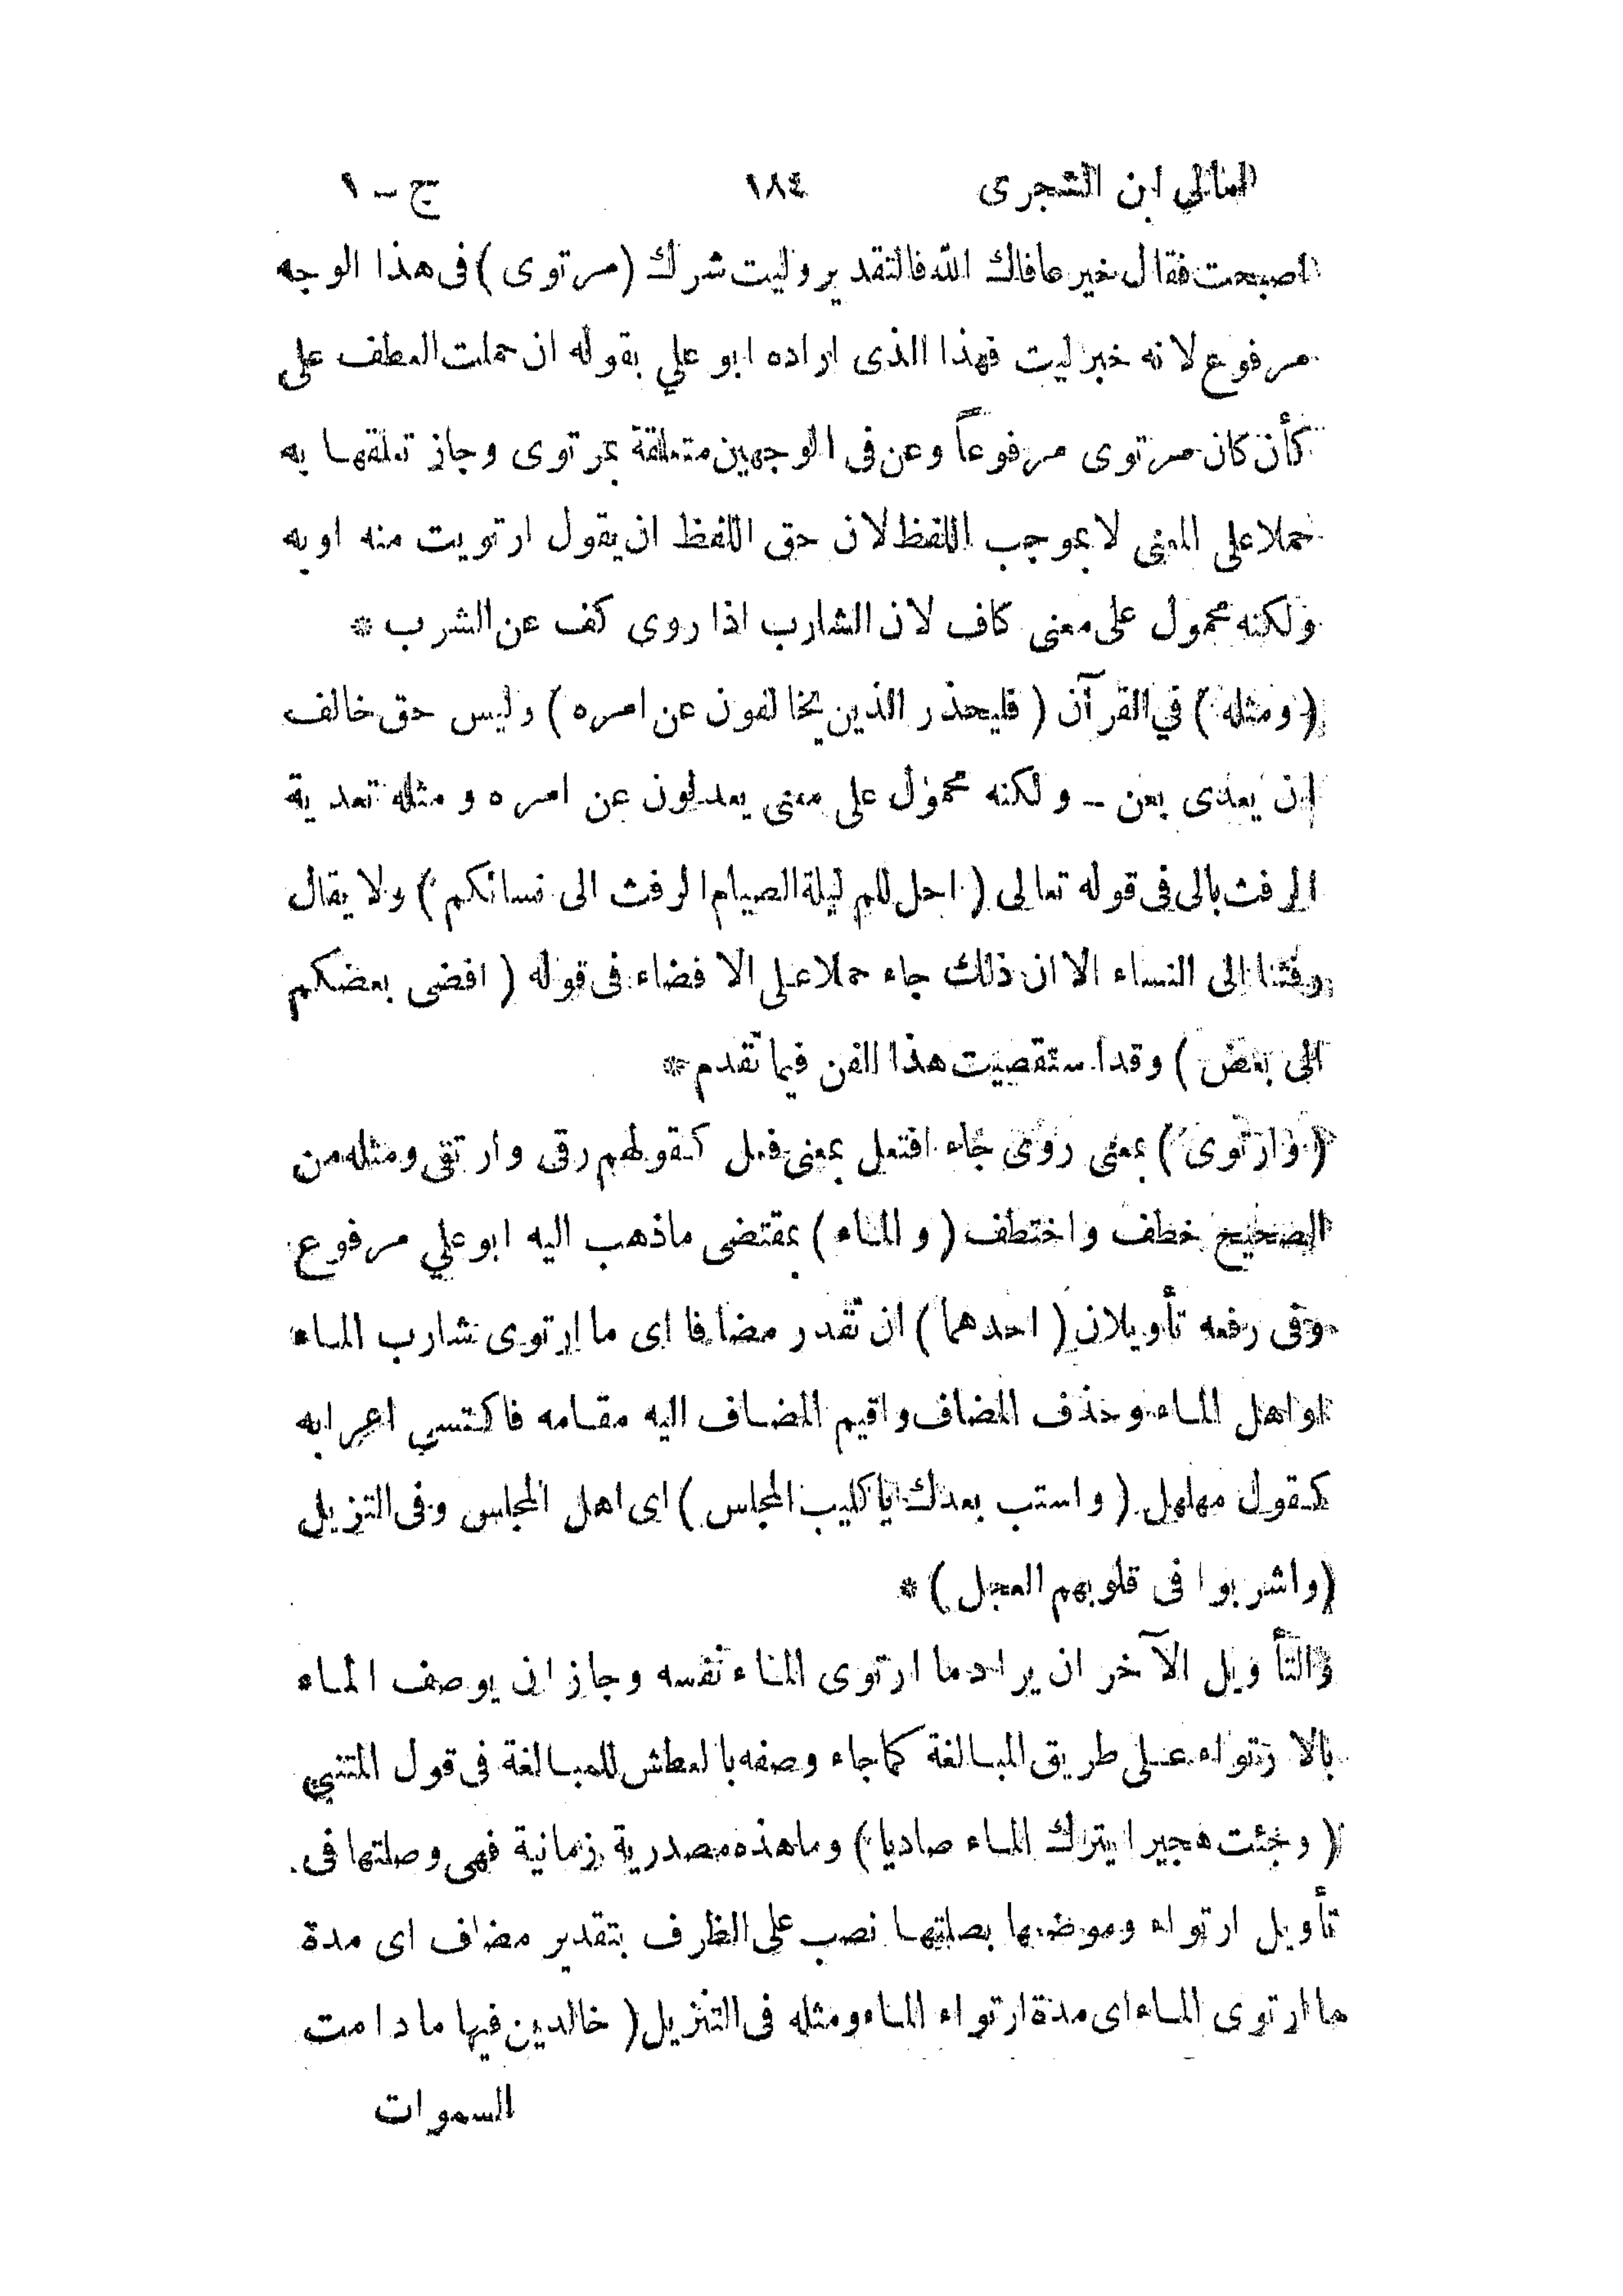 امالي ابن الشجرى ١٨٤ ج - ١
اصبحت فقال خير عافاك الله فالتقدير وليت شرك (مرتوى) فى هذا الوجه
مرفوع لانه خبر ليت فهذا الذى اراده ابو علي بقوله ان حملت العطف على
كأن كان مرتوى مرفوعاً وعن فى الوجهين متعلقة بمرتوى وجاز تعلقها به
حملا على المعنى لا بموجب اللفظ لان حق اللفظ ان يقول ارتويت منه او به
ولكنه محمول على معنى كاف لان الشارب اذا روى كف عن الشرب *
(ومثله) في القرآن (فليحذر الذين يخالفون عن امره) وليس حق خالف
ان يعدى بعن - ولكنه محمول على معنى يعدلون عن امره ومثله تعدية
الرفث بالى فى قوله تعالى (احل لكم ليلة الصيام الرفث الى نسائكم) ولا يقال
رفثنا الى النساء الا ان ذلك جاء حملا على الافضاء فى قوله (افضى بعضكم
الى بعض) وقد استقصيت هذا الفن فيما تقدم *
(وارتوى) بمعنى روى جاء افتعل بمعنى فعل كقولهم رقى وارتقى ومثله من
الصحيح خطف واختطف (والماء) بمقتضى ماذهب اليه ابو علي مرفوع
وفى رفعه تأويلان (احدهما) ان تقدر مضافا اى ما ارتوى شارب الماء
او اهل الماء وحذف المضاف واقيم المضاف اليه مقامه فاكتسي اعرابه
كقول مهلهل (واستب بعدك يا كليب المجلس) اى اهل المجلس وفى التنزيل
(واشربوا فى قلوبهم العجل) *
والتأويل الآخر ان يراد ما ارتوى الماء نفسه وجاز ان يوصف الماء
بالارتواء على طريق المبالغة كما جاء وصفه بالعطش للمبالغة فى قول المتنبي
(وجئت هجيرا يترك الماء صاديا) وما هذه مصدرية زمانية فهى وصلتها فى
تأويل ارتواء وموضعها بصلتها نصب على الظرف بتقدير مضاف اى مدة
ما ارتوى الماء اى مدة ارتواء الماء ومثله فى التنزيل (خالدين فيها ما دامت
السموات